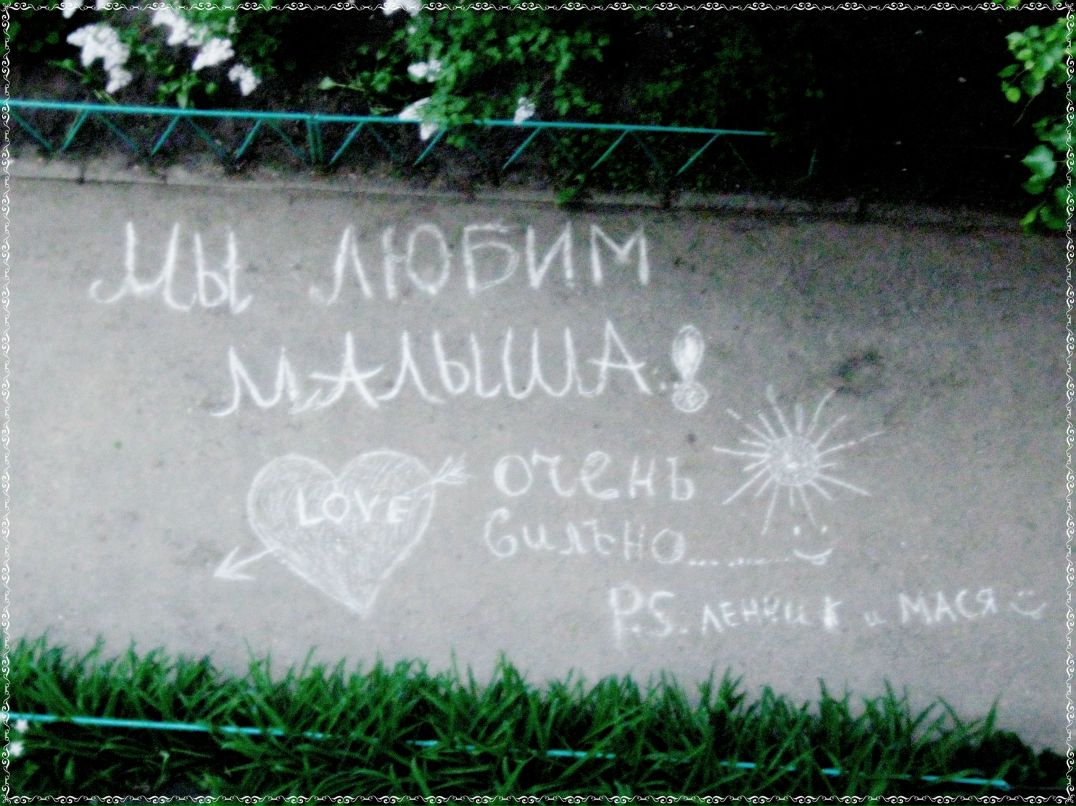 МЫ ЛЮБИМ
МАЛЫША!
LOVE
очень
сильно........
P.S. ЛЕНЧИК и МАСЯ